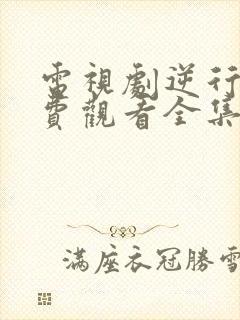 電視劇逆行
費觀看全集
滿座衣冠勝雪